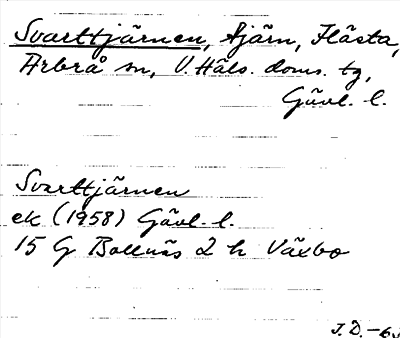 Svarttjärnen, tjärn, Flästa,
Arbrå sn, V. Häls. doms. tg,
Gävl. l.
Svarttjärnen
ek (1958) Gävl. l.
15 G Bollnäs 2 h Växbo
J.D.-63